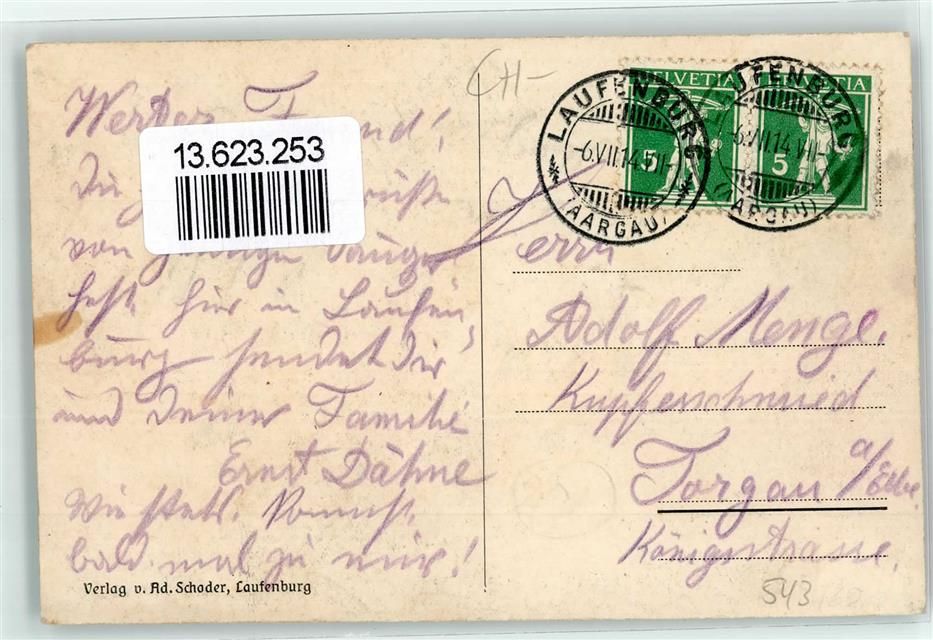 CH-
HELVETIA
5
HELVETIA
5
LAUFENBURG
-6.VII.14.
(AARGAU)
LAUFENBURG
-6.VII.14.VII-
(AARGAU)
13.623.253
Werter
Die
von
fest hier in Laufen,
burg sendet Dir
und Deiner Familie
Ernst Dähne
Wie steht's. Kommst
bald mal zu mir!
Herrn
Adolf Menge.
Kupferschmied
Torgau a/Elbe.
Königstrasse.
543
Verlag v. Ad. Schoder, Laufenburg